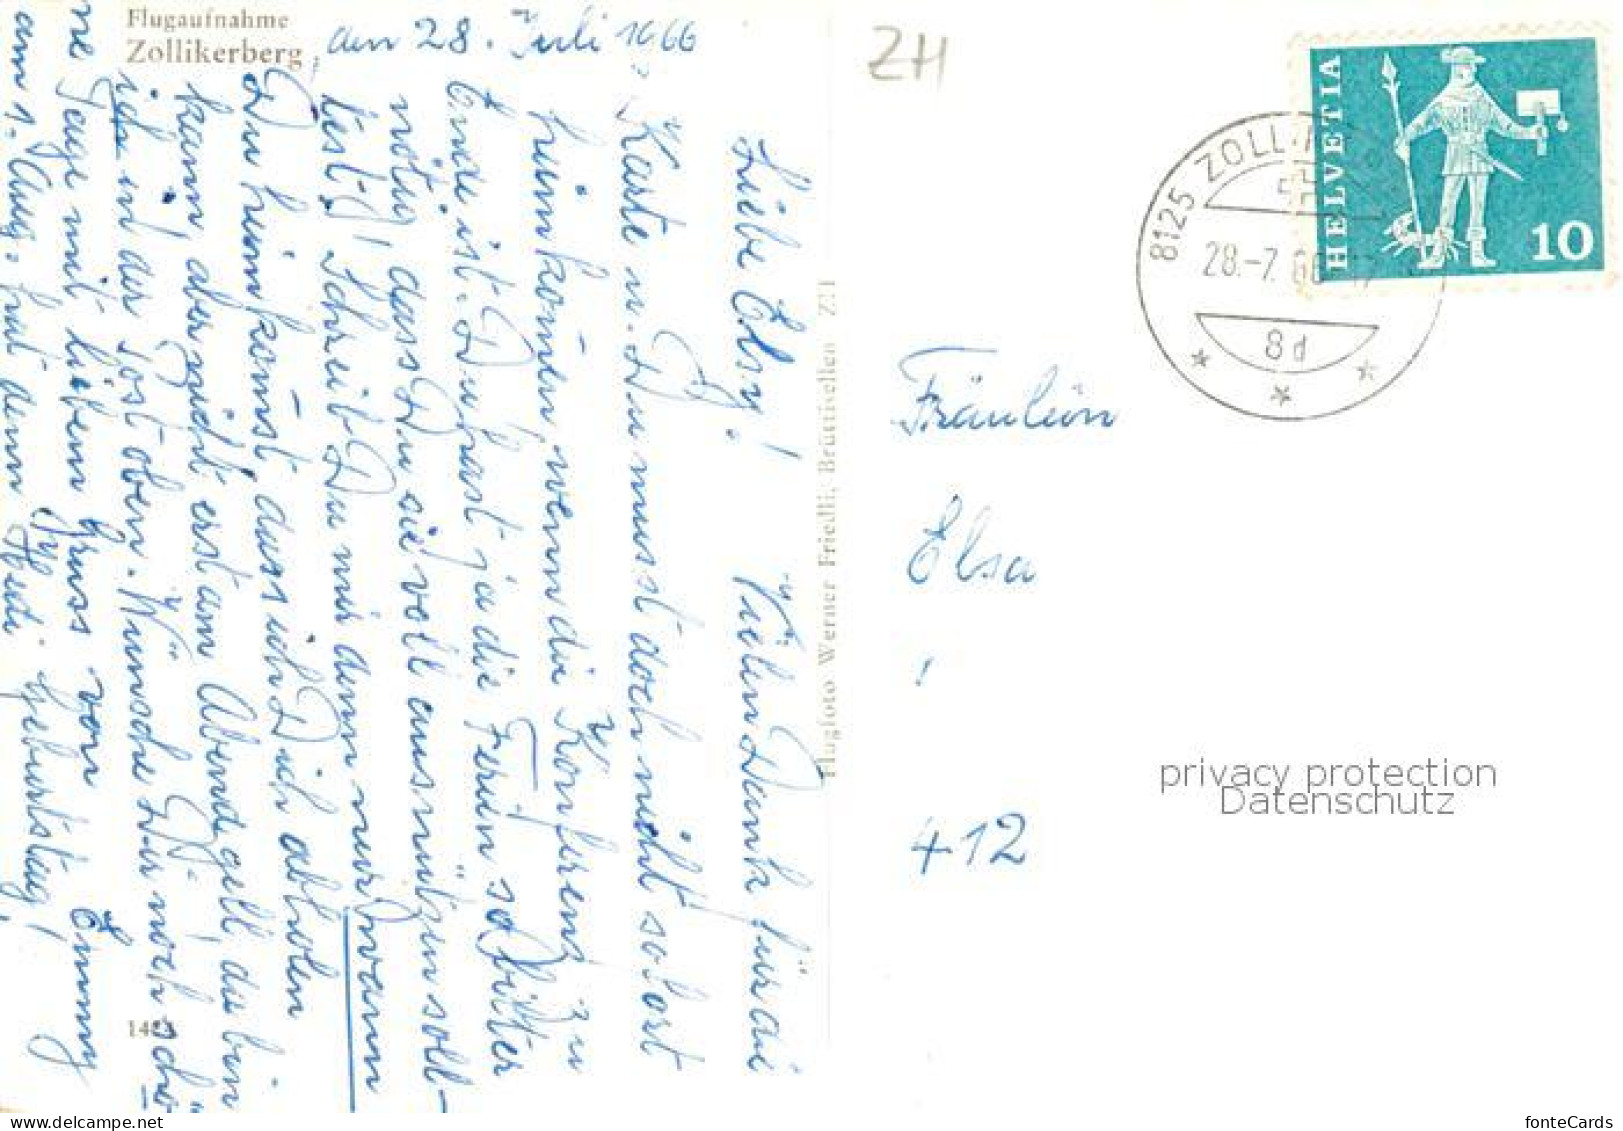 Flugaufnahme
Zollikerberg
den 28. Juli 1966
Liebe Elsy! Vielen Dank für die
Karte u. Du musst doch nicht sofort
heimkomen, wenn die Konferenz zu
Ende ist. Du hast ja die Ferien so bitter
nötig, dass Du sie voll ausnützen soll-
test! Schreib Du mir denn nur wann
Du heim komst, dass ich Dich abholen
kann, aber nicht erst am Abend gell, da bin
ich in der Post oben. Wünsche Dir noch schö
ne Tage mit liebem Gruss von Emmy
am 1. Aug. hat denn Hedi Geburtstag!
Flugfoto Werner Friedli, Brüttisellen ZH
ZH
HELVETIA
10
8125 ZOLLI
28.-7. 66
8d
Fräulein
Elsa
412
privacy protection
Datenschutz
www.delcampe.net
fonteCards